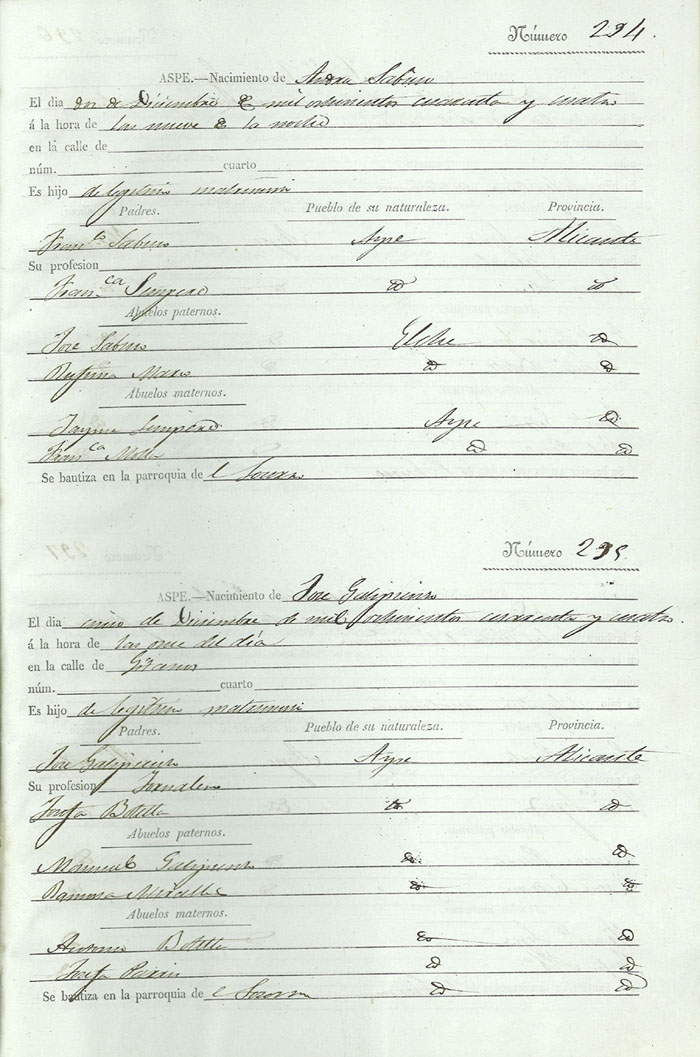 Número 294.
ASPE.—Nacimiento de Andrea Sabuco
El dia dos de Diciembre de mil ochocientos cuarenta y cuatro
á la hora de las nueve de la noche
en la calle de
núm. cuarto
Es hijo de legitimo matrimonio
Padres. Pueblo de su naturaleza. Provincia.
Fran.co Sabuco Aspe Alicante
Su profesion
Fran.ca Sempere id id
Abuelos paternos.
Jose Sabuco Elche id
Rufina id id
Abuelos maternos.
Jayme Sempere Aspe id
Fran.ca id id
Se bautiza en la parroquia de el Socorro
Número 295.
ASPE.—Nacimiento de Jose Galipienso
El dia cinco de Diciembre de mil ochocientos cuarenta y cuatro
á la hora de las once del día
en la calle de
núm. cuarto
Es hijo de legitimo matrimonio
Padres. Pueblo de su naturaleza. Provincia.
Jose Galipienso Aspe Alicante
Su profesion Jornalero
Josefa Botella id id
Abuelos paternos.
Manuel Galipienso id id
Ramona Miralles id id
Abuelos maternos.
Antonio Botella id id
Josefa id id
Se bautiza en la parroquia de el Socorro id id